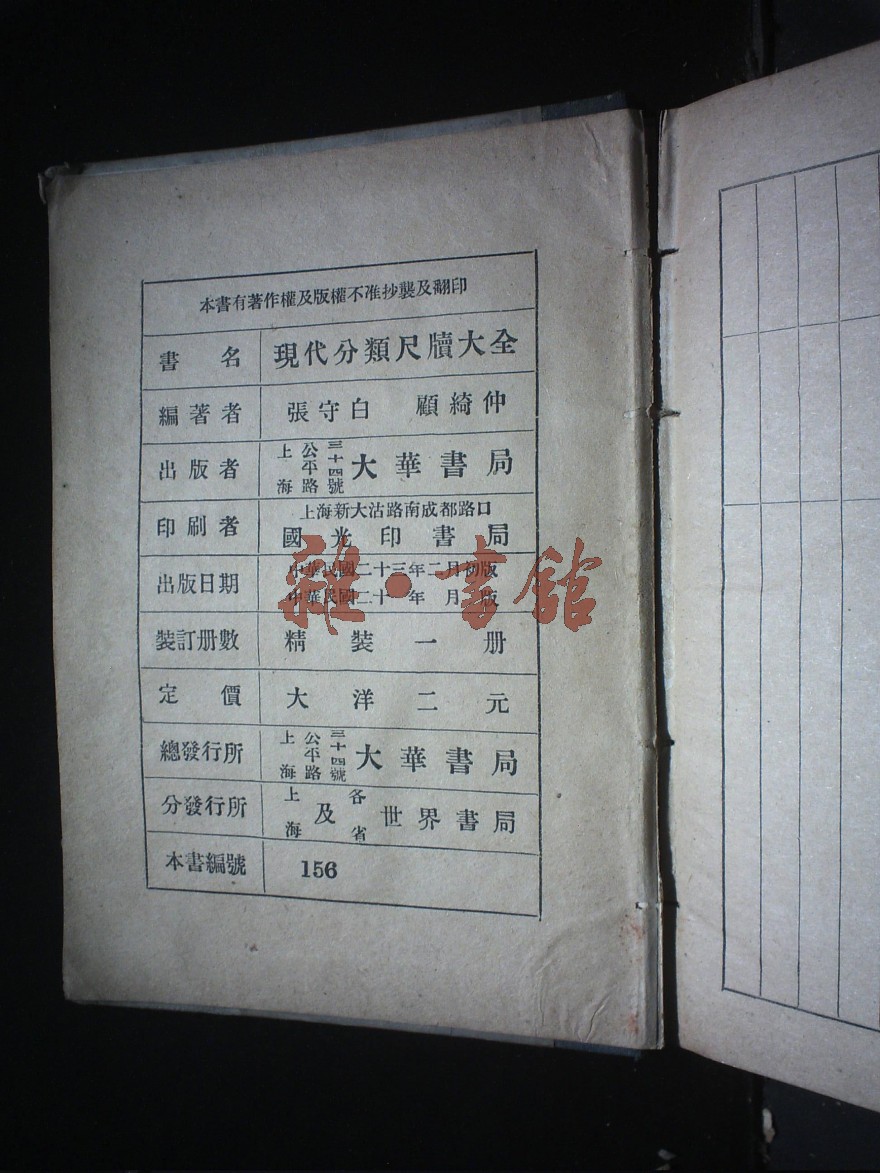 本書有著作權及版權不准抄襲及翻印
書名 現代分類尺牘大全
編著者 張守白 顧綺仲
出版者 上海公平路三十四號 大華書局
印刷者 上海新大沽路南成都路口
國光印書局
出版日期 中華民國二十三年二月初版
中華民國二十 年 月 版
裝訂册數 精裝一册
定價 大洋二元
總發行所 上海公平路三十四號 大華書局
分發行所 上海及各省 世界書局
本書編號 156
雜·書館